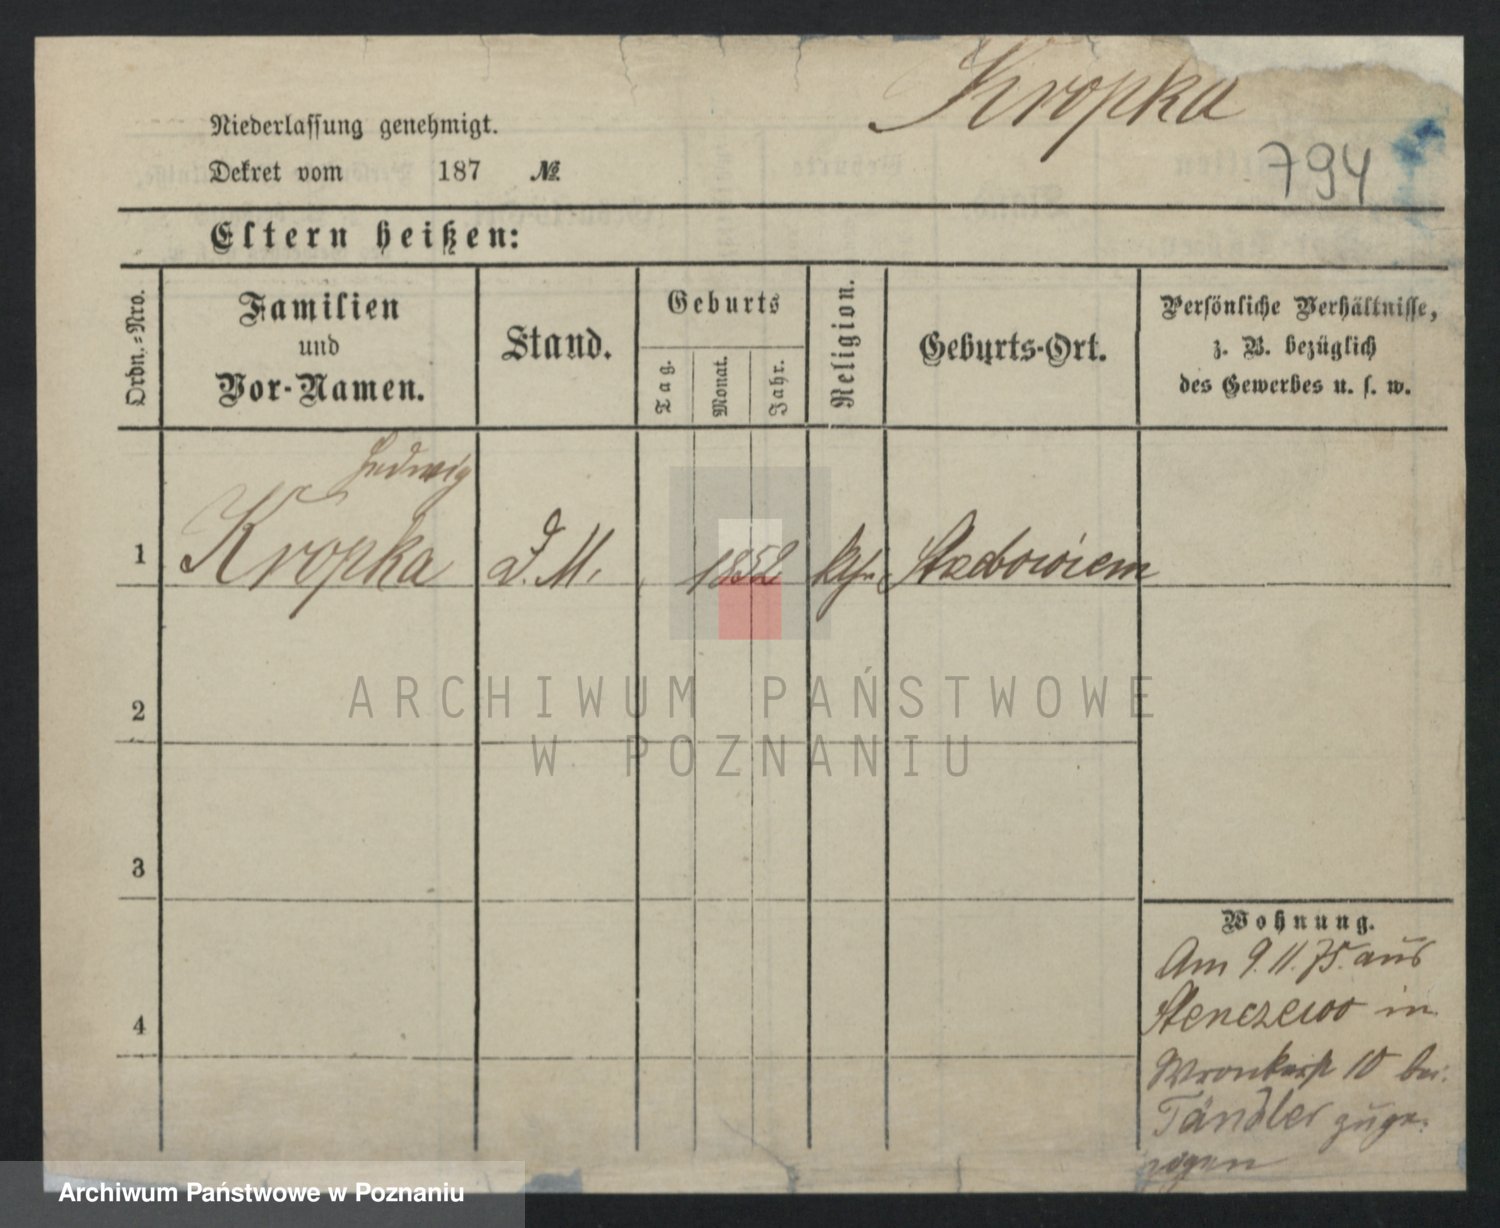 Kropka
794
Niederlassung genehmigt.
Dekret vom 187 №
Eltern heißen:
Ordn.-Nro.
Familien
und
Vor-Namen.
Stand.
Geburts
Tag.
Monat.
Jahr.
Religion.
Geburts-Ort.
Persönliche Verhältnisse,
z. B. bezüglich
des Gewerbes u. s. w.
Hedwig
1 Kropka D. M. 1852 kth.
2
3
4
Wohnung.
Am 9.11.75. aus
Stenczewo in
Wronkerst 10 bei
Tändler zuge-
zogen
ARCHIWUM PAŃSTWOWE
W POZNANIU
Archiwum Państwowe w Poznaniu